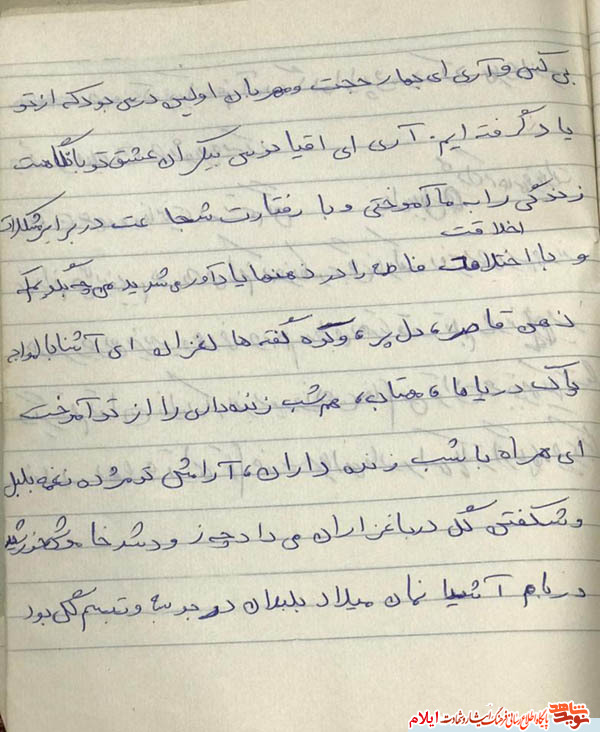 بی کسی و آری ای بیمار حجت و مهربان اولین درسی بود که از تو
یاد گرفته ایم. آری ای اقیانوس بیکران عشق تو با نگاهت
زندگی را به ما آموختی و با رفتارت شجاعت در برابر مشکلات
اخلاقت
و با فاطمه را در ذهنها یادآور می شدید می چه بگویم که
ذهن قاصر، دل پر، و گفته ها لغزان ای آشنا با امواج
پاک دریاها، مهتاب، هم شب زنده داری را از تو آموخت
ای همراه با شب زنده داران، آرامش تو مژده نغمه بلبل
و شکفتن گل در باغزاران می داد چه زود شد خاموش خورشید
در بام آشیانمان میلاد بلبلان در و تبسم گل بود
نوید شاهد
پایگاه اطلاع رسانی فرهنگ ایثار و شهادت ایلام